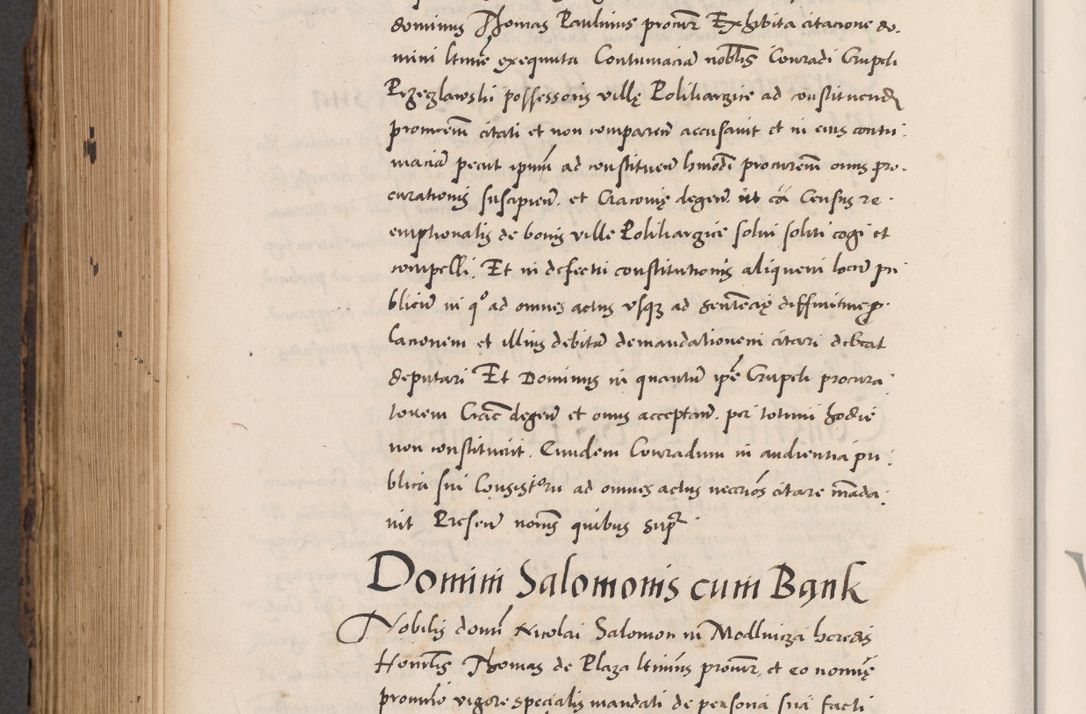 dominus Thomas Paulinus procur Exhibita citacione do.
mini ltime exequuta Contumaciā nobilis Conradi Crupek
Przeczlawski possessoris villę Polikarzice ad constituend
procurem citati et non comparen accusavit et in eius contu:
maciā peciit ipsum ad constituen hmodi procurem onus pro.
curationis suscipien. et Cracovię degen ut cā Census re.
emptionalis de bonis ville Polikargice solui soliti cogi et
compelli. Et in defectu constitutionis aliquem locū pu
blicū in qo ad omnes actus vsqz ad sentencię diffinitiue pro
lacionem et illius debitā demandationem citari debeat
deputari Et Dominus in quantū ipse Crupek procura
torem Crac degen et onus acceptan. per totum hodie
non constituerit. Eundem Conradum in audientia pu:
blica sui Consistorii ad omnes actus neccrios citare māda:
uit Presen nomis quibus supr
Domini Salomonis cum Bank
Nobilis domi Nicolai Salomon in Modlnicza heredis
Honlis Thomas de Plaza ltimus procur, et eo nomię
procurio vigore specialis mandati de persona sua facti